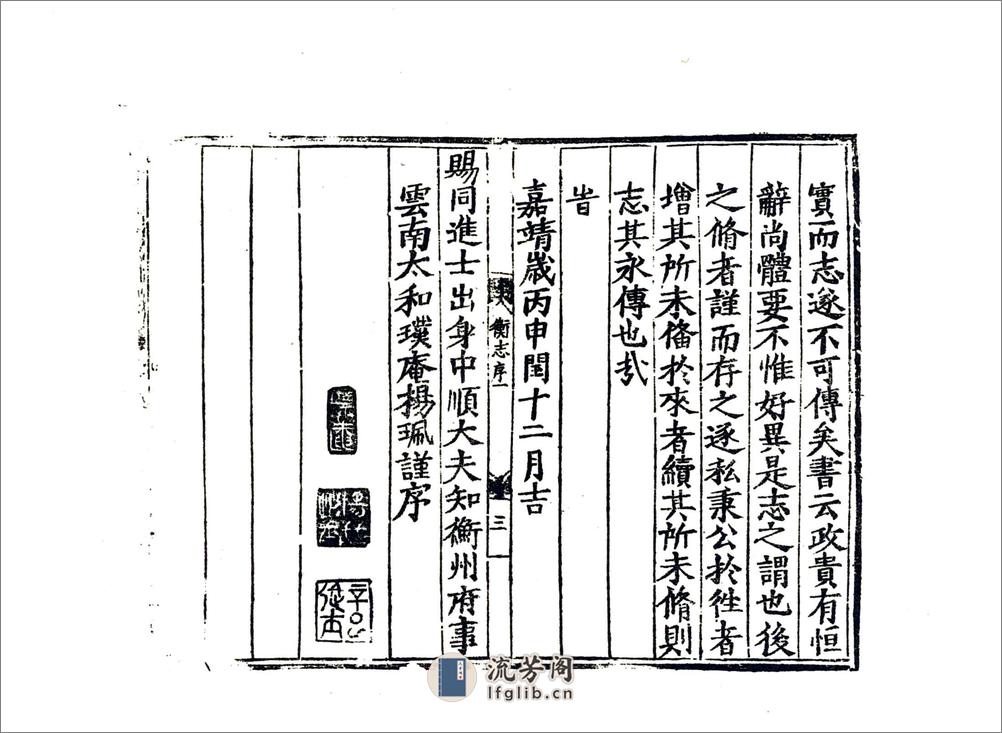 實而志遂不可傳矣書云政貴有恒
辭尚體要不惟好異是志之謂也後
之脩者謹而存之逐私秉公於徃者
增其所未備於來者續其所未脩則
志其永傳也㢤
旹
嘉靖歲丙申閏十二月吉
衡志序
三
賜同進士出身中順大夫知衡州府事
雲南太和璞庵楊珮謹序
流芳阁
lfglib.cn